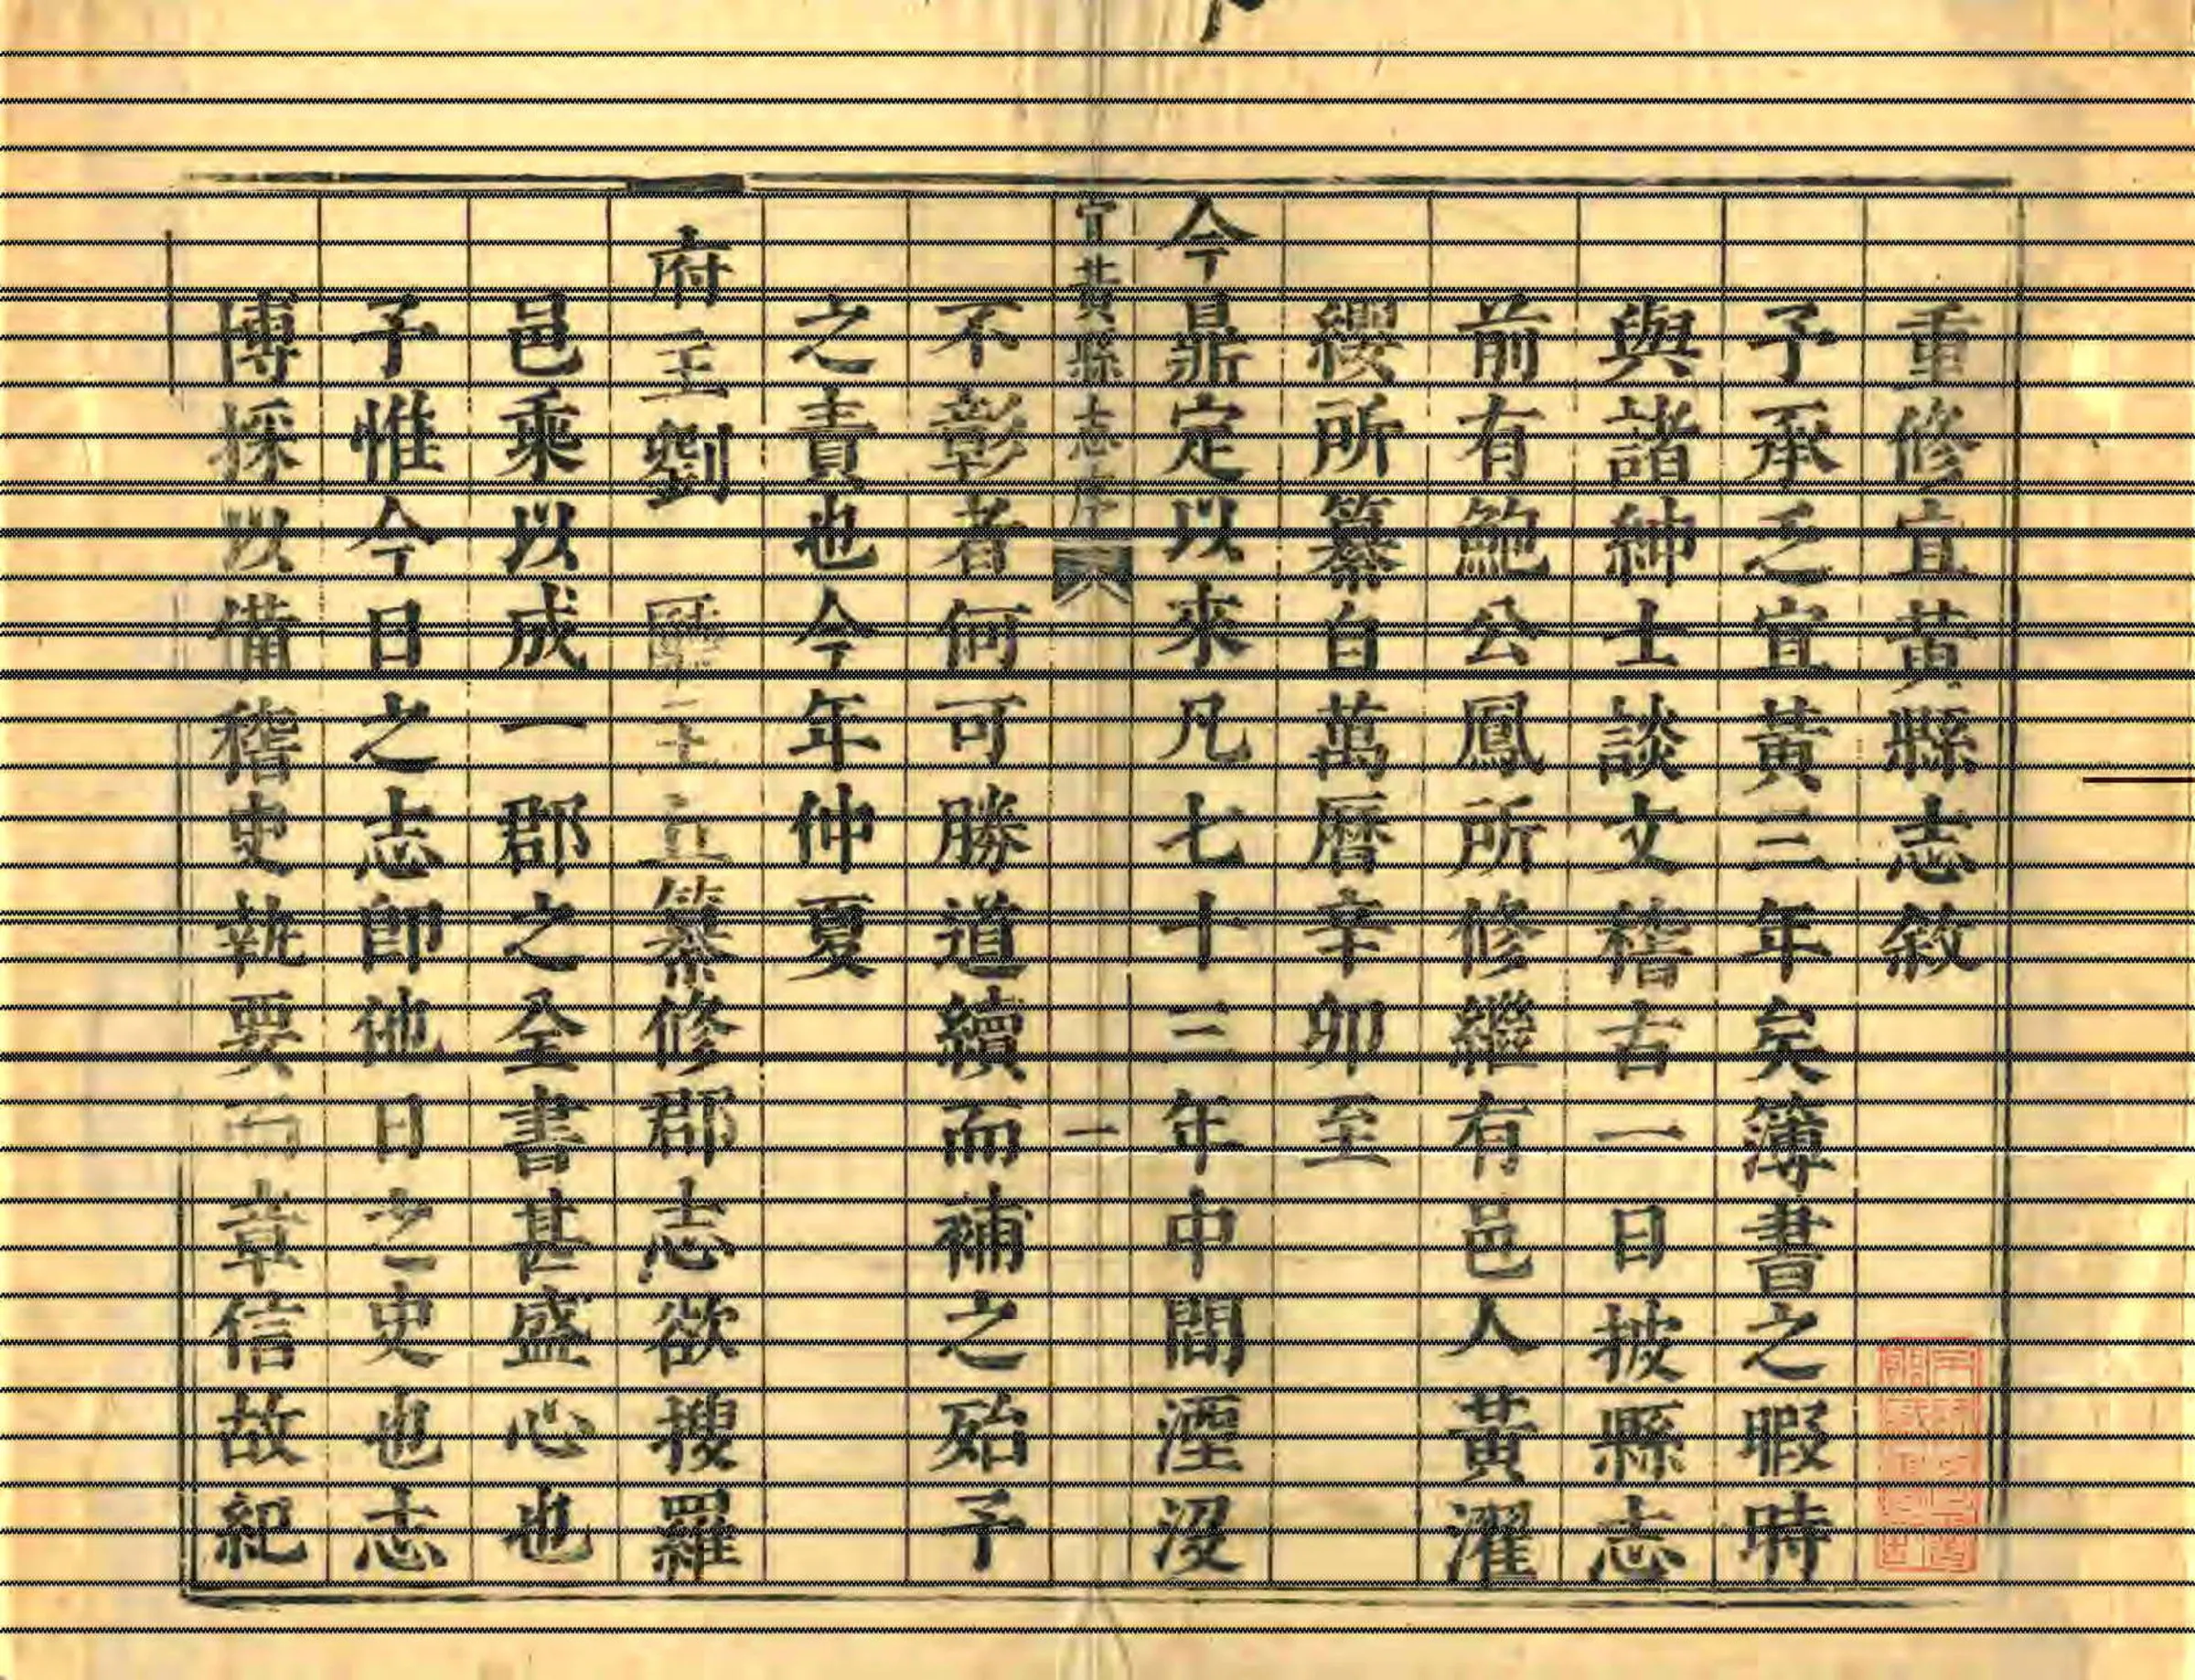 重修宜黃縣志敘
予承乏宜黃三年矣簿書之暇時
與諸紳士談文稽古一日披縣志
前有鮑公鳳所修繼有邑人黃濯
纓所纂自萬曆辛卯至
今鼎定以來凡七十三年中間湮沒
宜黃縣志序 一
不彰者何可勝道續而補之殆予
之責也今年仲夏
府主劉 廳主 纂修郡志欲搜羅
邑乘以成一郡之全書甚盛心也
予惟今日之志即他日之史也志
博採以備稽史執要 章信故紀